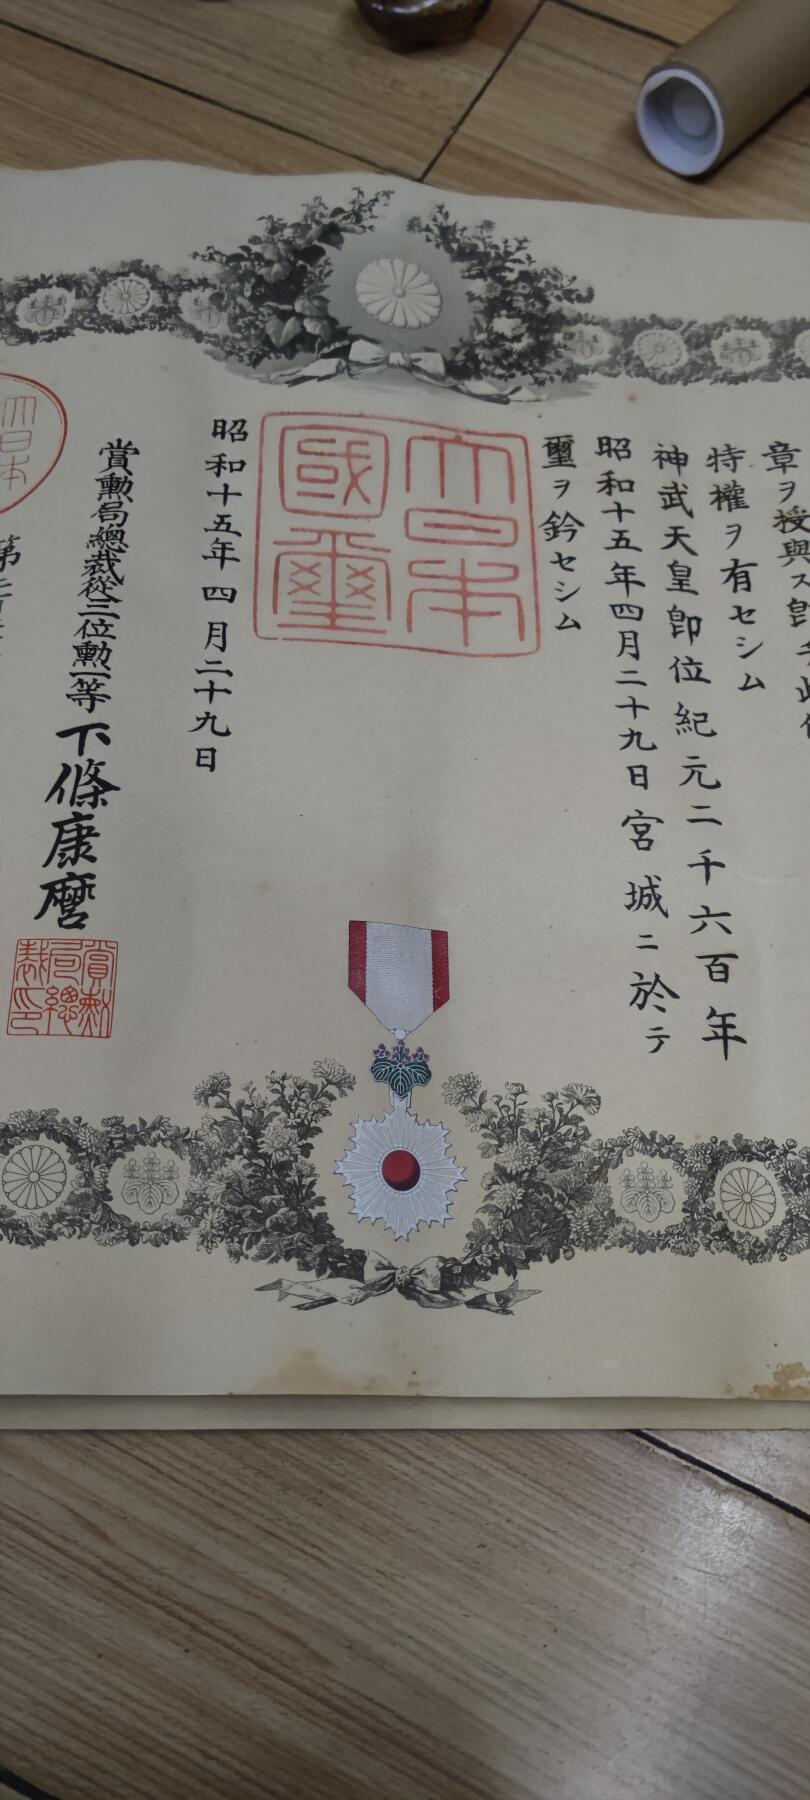 章ヲ授與ス卽チ此
特權ヲ有セシム
神武天皇卽位紀元二千六百年
昭和十五年四月二十九日宮城ニ於テ
璽ヲ鈐セシム
大日本
國璽
昭和十五年四月二十九日
賞勲局總裁從三位勲一等下條康麿
賞勲
局總
裁印
大日本
第二